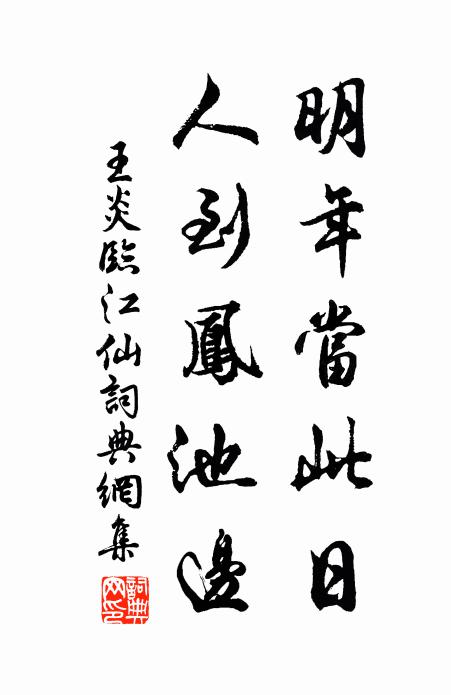 明年當此日
人到鳳池邊
王炎臨江仙詞典網集
詞典
网印